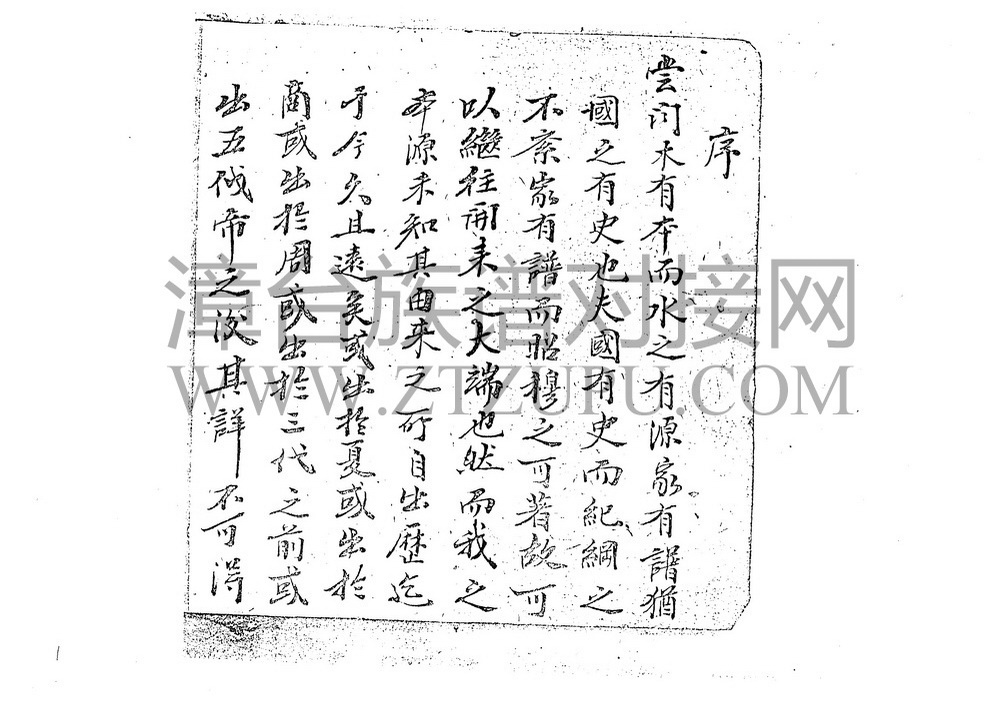 序
嘗问木有本而水之有源家有譜猶
國之有史也夫國有史而紀綱之
不紊家有譜而昭穆之可著故可
以繼往開来之大端也然而我之
本源未知其由来之所自出歷迄
于今久且遠矣或出於夏或出於
商或出於周或出於三代之前或
出五伐帝之後其詳不可得
漳台族谱对接网
WWW.ZTZUPU.COM